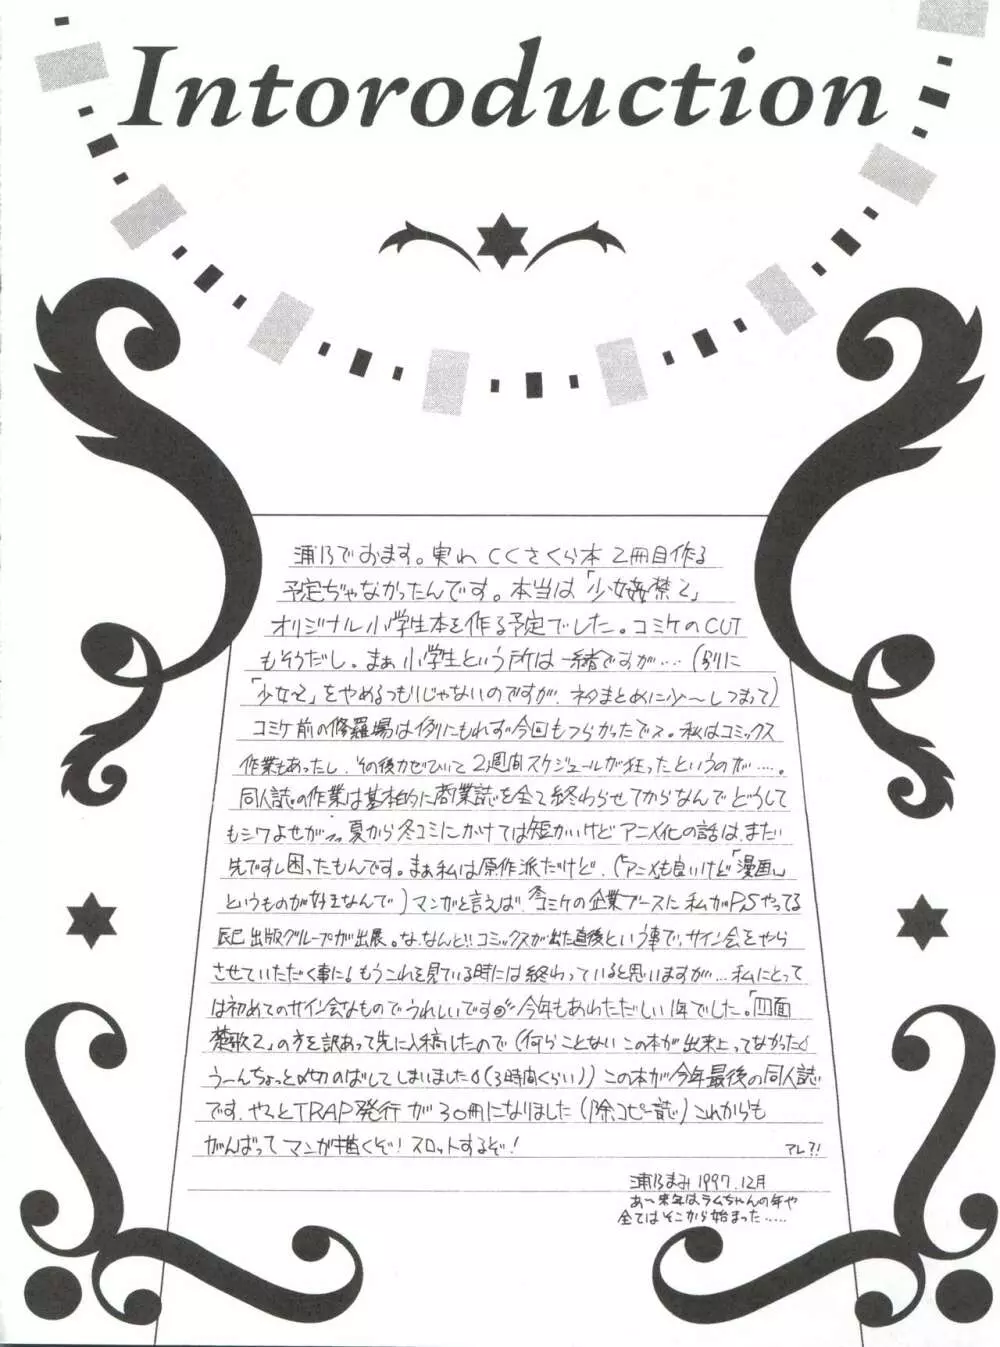 Intoroduction
浦乃でおます。実わ CCさくら本 2冊目作る
予定ぢゃなかったんです。本当は「少女姦禁2」
オリジナル小学生本を作る予定でした。コミケのCUT
もそうだし。まぁ小学生という所は一緒ですが…(別に
「少女2」をやめるつもりじゃないのですが、ネタまとめに少〜しつまって)
コミケ前の修羅場は例にもれず今回もつらかったでス。私はコミックス
作業もあったし、その後カゼひいて2週間スケジュールが狂ったというのが…。
同人誌の作業は基本的に商業誌を全て終わらせてからなんでどうして
もシワよせが。夏から冬コミにかけては短かいけどアニメ化の話は、まだ
先ですし困ったもんです。まぁ私は原作派だけど、(「アニメも良いけど「漫画」
というものが好きなんで)マンガと言えば、冬コミケの企業ブースに私がP.Sやってる
辰巳出版グループが出展。な、なんと!!コミックスが出た直後という事で、サイン会をやら
させていただく事に!もうこれを見ている時には終わっていると思いますが…私にとって
は初めてのサイン会なものでうれしいです 今年もあわただしい1年でした。「四面
楚歌2」の方を訳あって先に入稿したので(何らことないこの本が出来上ってなかった
う〜んちょっと〆切のばしてしまいました(3時間くらい))この本が今年最後の同人誌
です。やっとTRAP発行が30冊になりました(除コピー誌)これからも
がんばってマンガ描くぞ!スロットするぞ! アレ?!
浦乃まみ 1997.12月
あ〜来年はラムちゃんの年や
全てはそこから始まった……